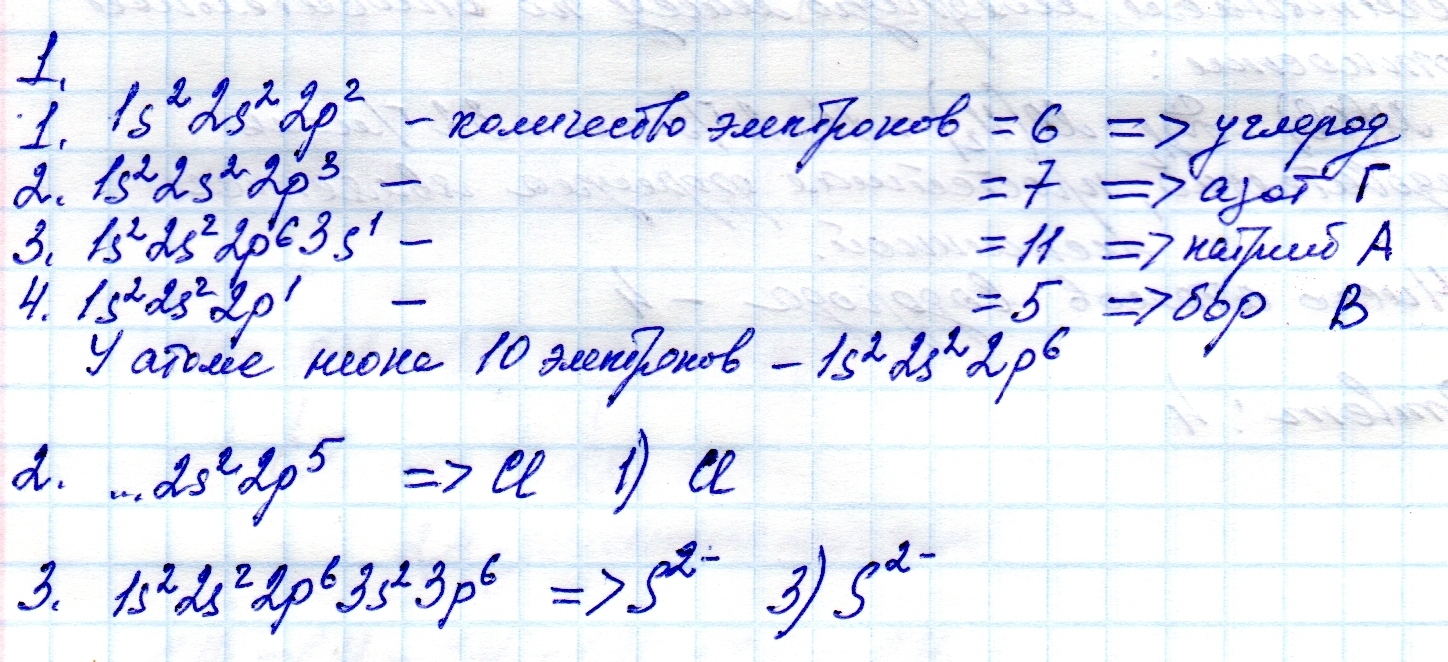 1.
1. 1s² 2s² 2p² – количество электронов = 6 => углерод
2. 1s² 2s² 2p³ – = 7 => азот Г
3. 1s² 2s² 2p⁶ 3s¹ – = 11 => натрий А
4. 1s² 2s² 2p¹ – = 5 => бор В
У атома неона 10 электронов – 1s² 2s² 2p⁶
2. ...2s² 2p⁵ => Cl 1) Cl
3. 1s² 2s² 2p⁶ 3s² 3p⁶ => S²⁻ 3) S²⁻